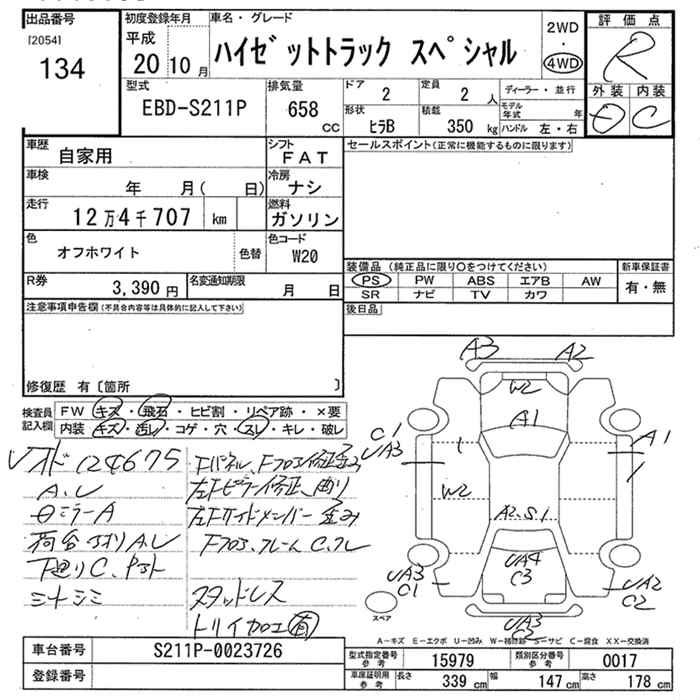 出品番号
[2054]
134
初度登録年月
平成
20 10 月
車名・グレード
ハイゼットトラック スペシャル
2WD
・
4WD
評価点
R
外装 内装
D C
型式
EBD-S211P
排気量
658 cc
ドア
2
定員
2 人
ディーラー・並行
モデル年式 年
ハンドル 左・右
形状
ヒラB
積載
350 kg
車歴
自家用
シフト
FAT
車検
年 月( 日)
冷房
ナシ
走行
12万4千707 km
燃料
ガソリン
色
オフホワイト
色替
色コード
W20
R券
3,390 円
名変通知期限
月 日
セールスポイント(正常に機能するものに限ります)
装備品 (純正品に限り○をつけてください)
PS PW ABS エアB AW
SR ナビ TV カワ
新車保証書
有・無
後日品
注意事項申告欄(不具合内容等は具体的に記入して下さい)
修復歴 有〔箇所 〕
検査員記入欄
FW キズ・飛石・ヒビ割・リペア跡・×要
内装 キズ・汚レ・コゲ・穴・スレ・キレ・破レ
124675
A.U
ミラーA
荷台 A.U
下廻りC.
スタッドレス
トリイ加工 有
A3 A2
W2
A1
C1
UA3
1
A1
1
W2
A2.S1
UA4
C3
UA3
C1
UA2
C2
UA3
C2
スペア
A-キズ E-エクボ U-凹み W-補修跡 S-サビ C-腐食 XX-交換済
車台番号
S211P-0023726
登録番号
型式指定番号参考
15979
類別区分番号参考
0017
車庫証明用参考
長さ 339 cm 幅 147 cm 高さ 178 cm